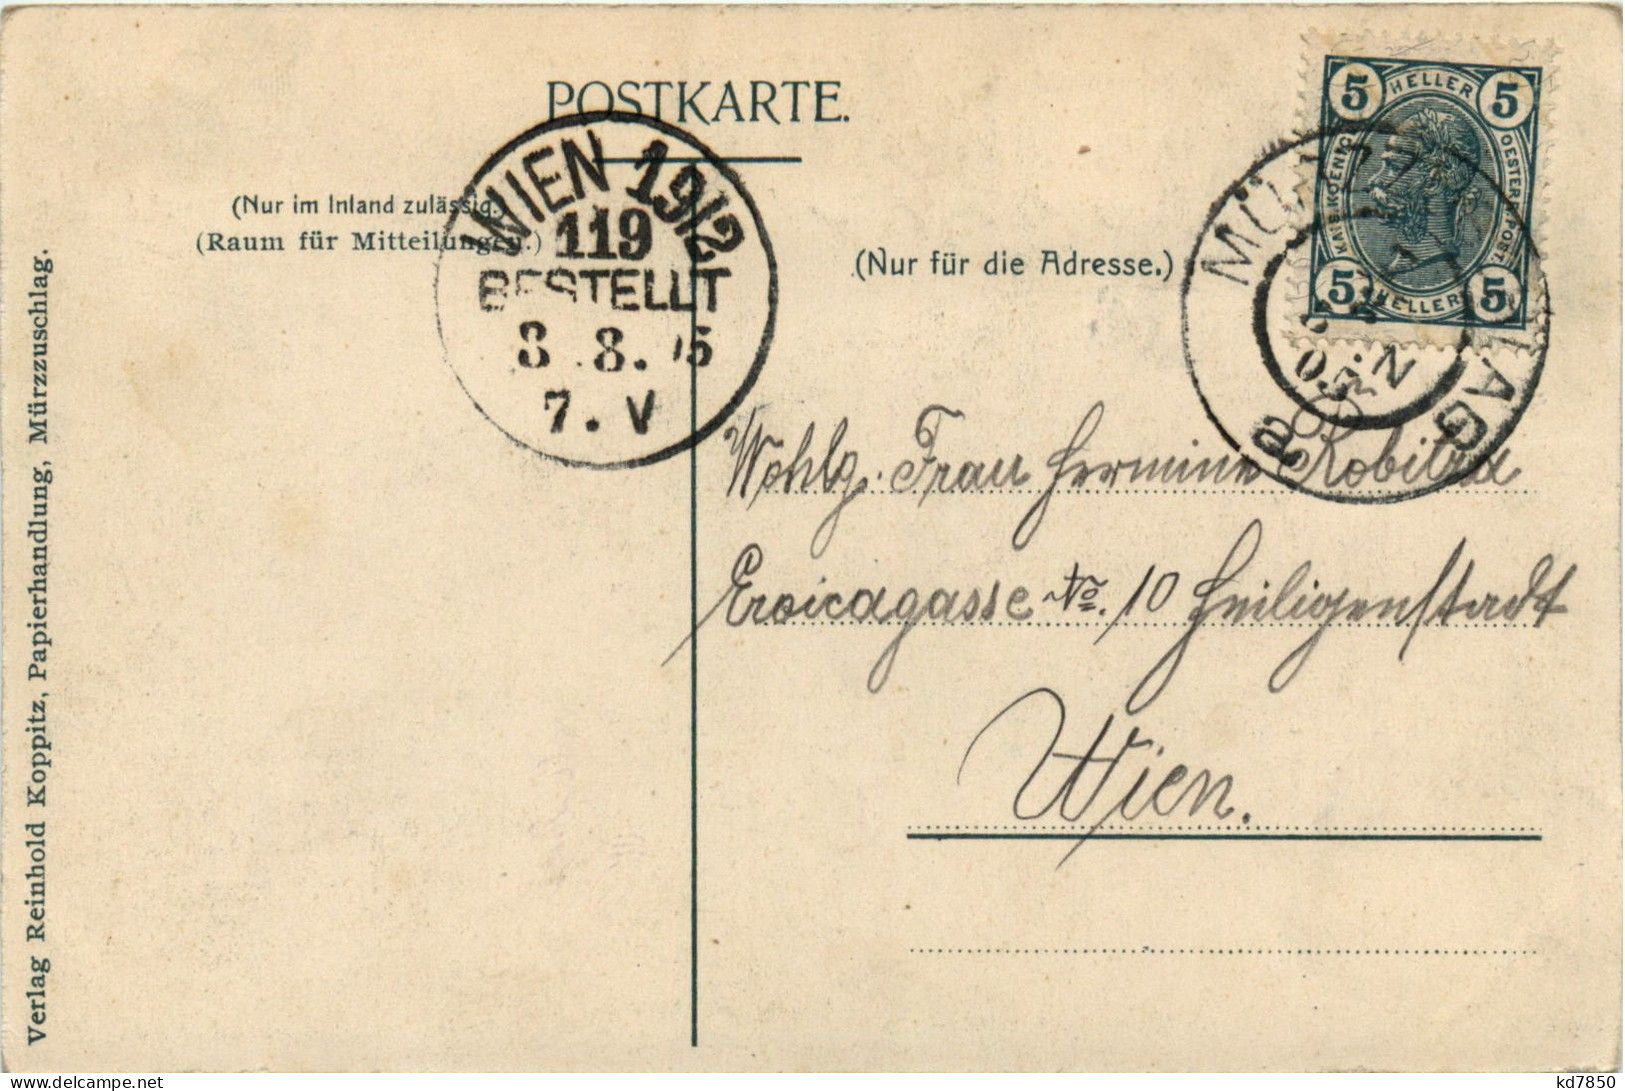 POSTKARTE.
(Nur im Inland zulässig.)
(Raum für Mitteilungen.)
(Nur für die Adresse.)
WIEN 19/2
119
BESTELLT
8. 8. 05
7. V
5 HELLER 5
KAIS. KOENIGL. OESTERR. POST.
5 HELLER 5
Wohlg. Frau Hermine
Eroicagasse No. 10 Heiligenstadt
Wien.
Verlag Reinhold Koppitz, Papierhandlung, Mürzzuschlag.
delcampe.net
kd7850